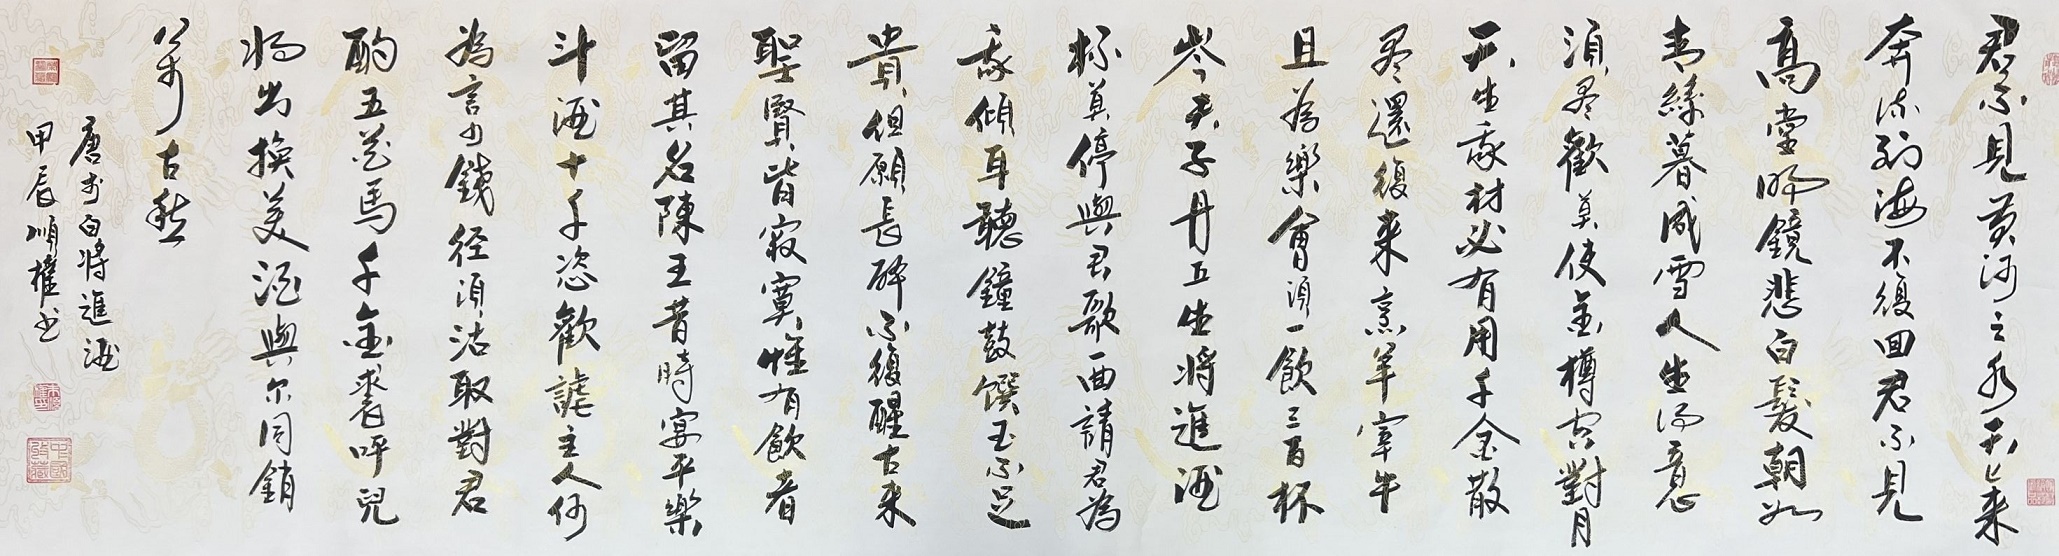 君不見黃河之水天上来
奔流到海不復回君不見
高堂明鏡悲白髮朝如
青絲暮成雪人生得意
須盡歡莫使金樽空對月
天生我材必有用千金散
盡還復来烹羊宰牛
且為樂會須一飲三百杯
岑夫子丹丘生將進酒
杯莫停與君歌一曲請君為
我傾耳聽鐘鼓饌玉不足
貴但願長醉不復醒古来
聖賢皆寂寞惟有飲者
留其名陳王昔時宴平樂
斗酒十千恣歡謔主人何
為言少錢徑須沽取對君
酌五花馬千金裘呼兒
將出換美酒與尔同銷
萬古愁
唐李白將進酒
甲辰順權書